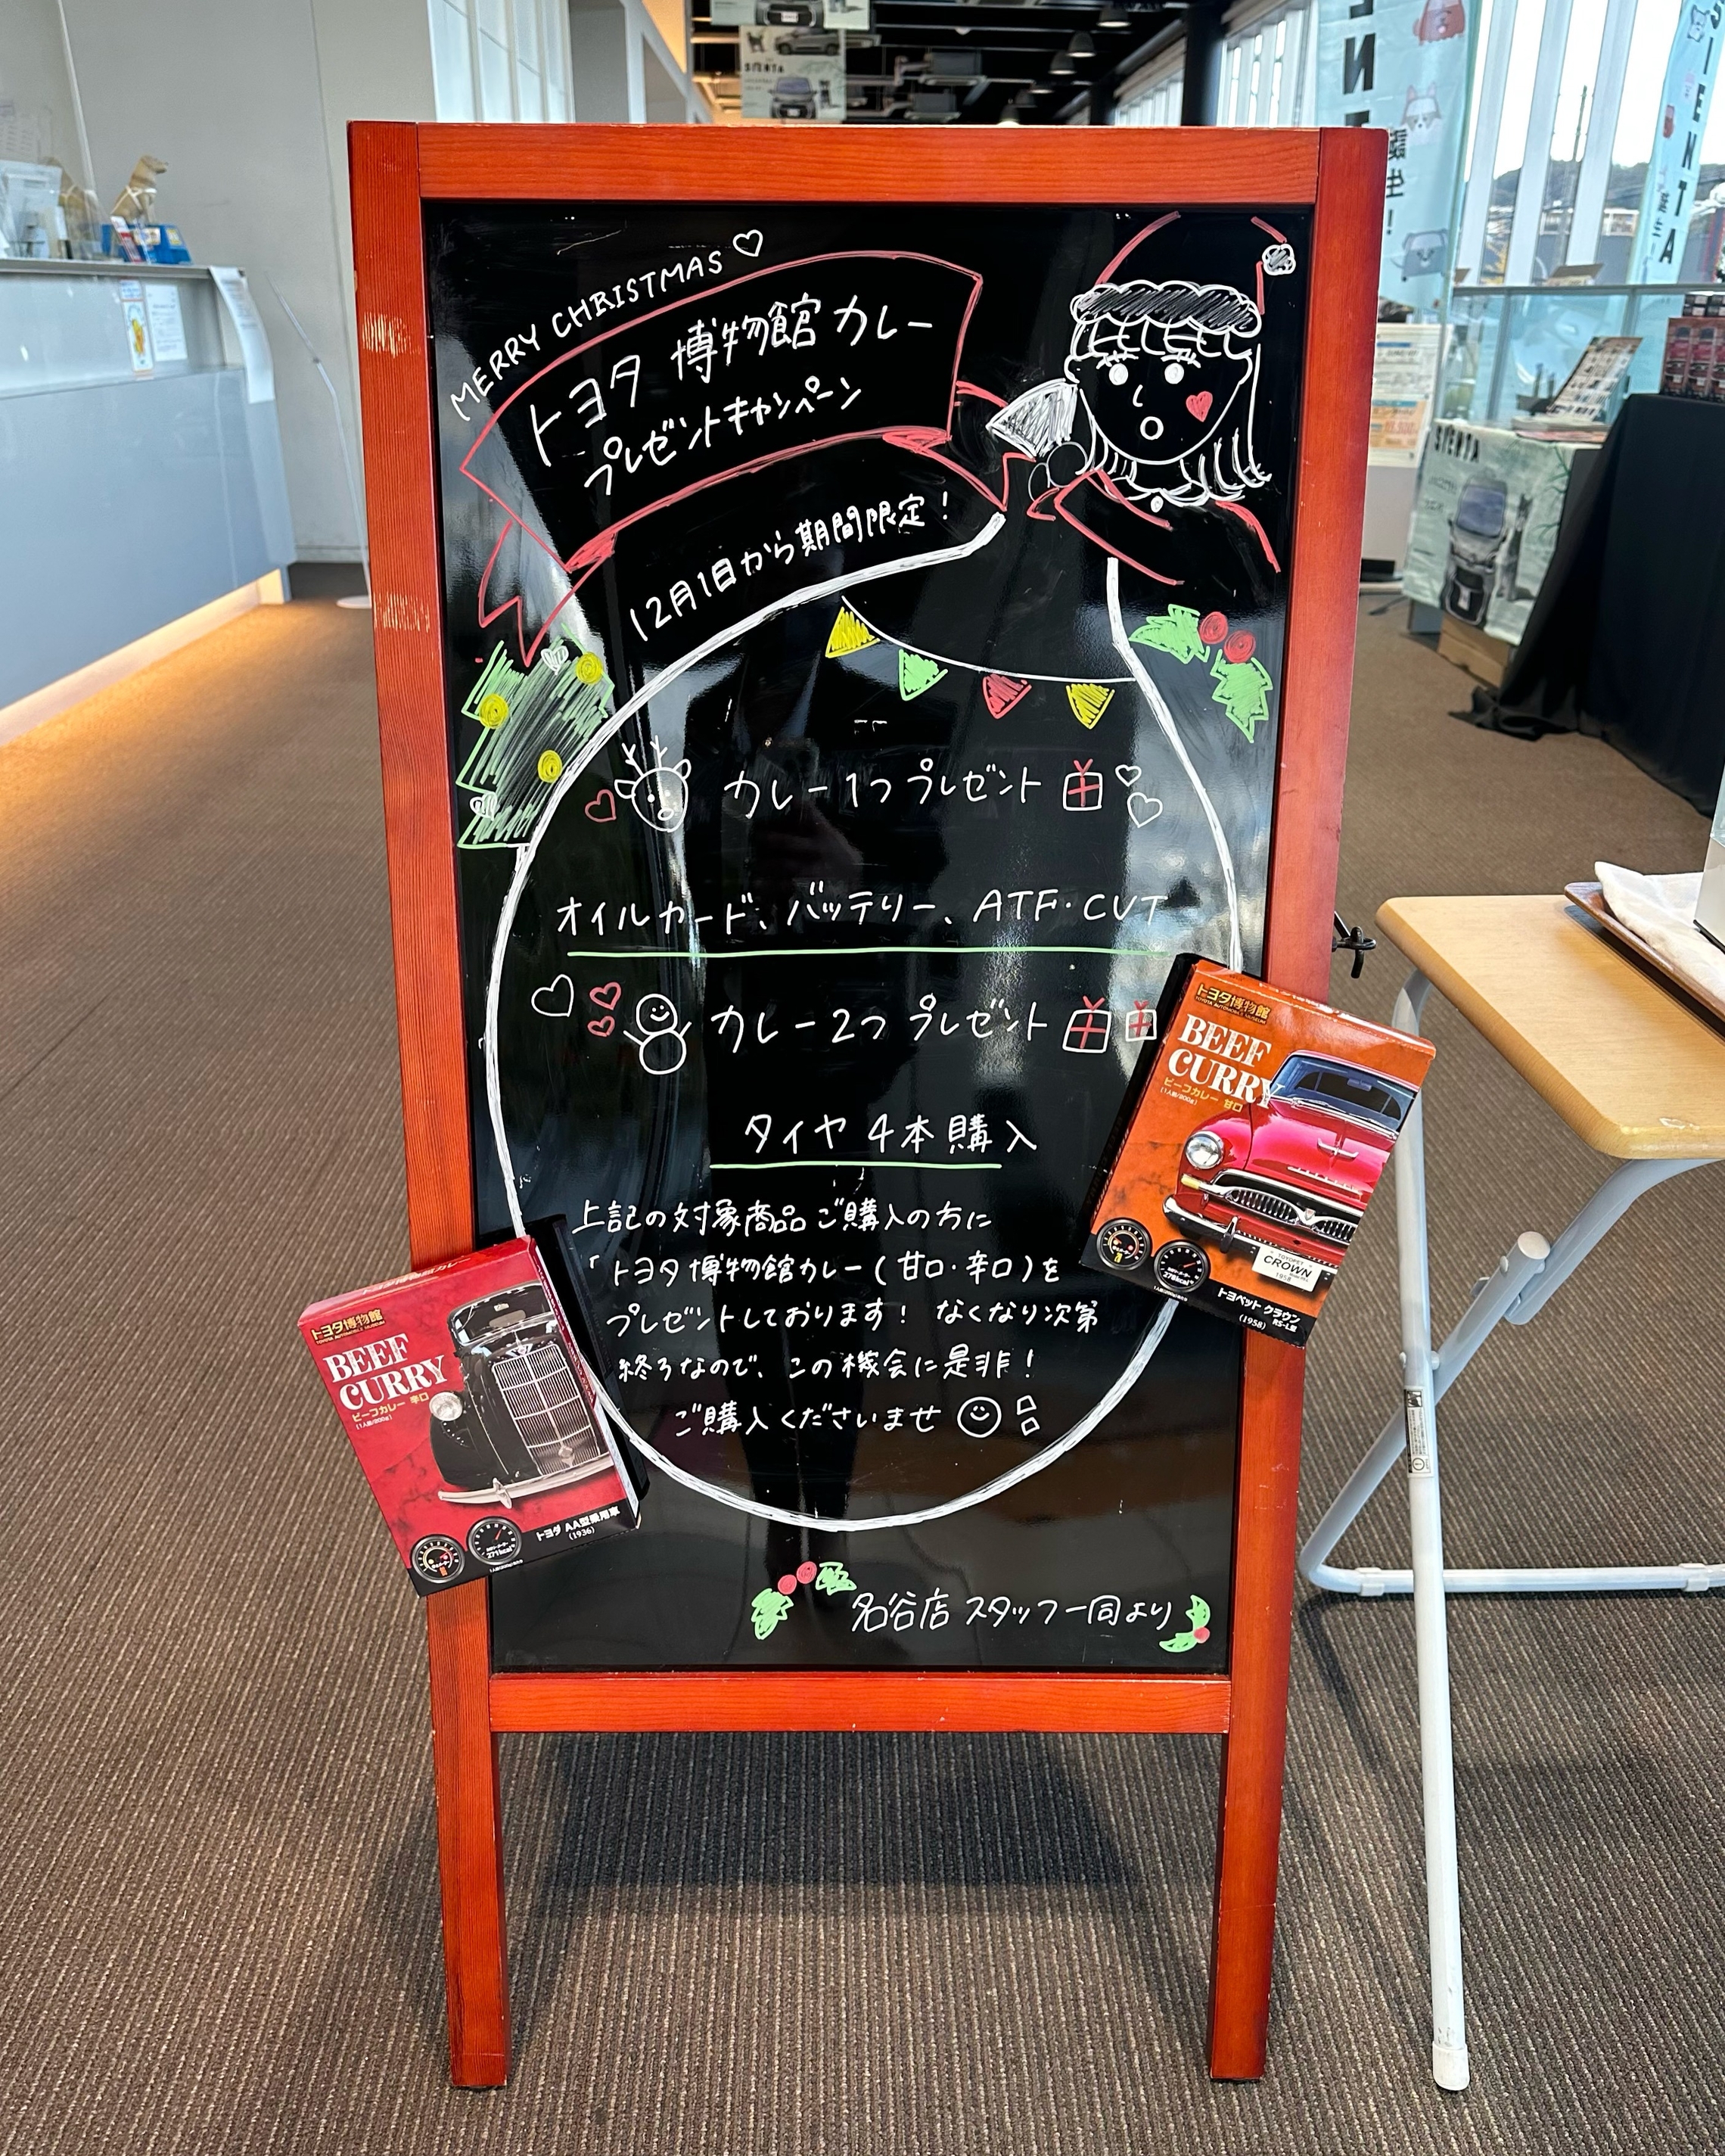 MERRY CHRISTMAS
トヨタ 博物館 カレー
プレゼントキャンペーン
12月1日から期間限定！
カレー1つ プレゼント
オイルカード、バッテリー、ATF・CVT
カレー2つ プレゼント
タイヤ 4本購入
上記の対象商品ご購入の方に
「トヨタ博物館カレー(甘口・辛口)を
プレゼントしております！ なくなり次第
終了なので、この機会に是非！
ご購入くださいませ
名谷店 スタッフ一同より
トヨタ博物館
TOYOTA AUTOMOBILE MUSEUM
BEEF
CURRY
ビーフカレー 甘口
(1人前/200g)
TOYOPET
CROWN
1958
トヨペット クラウン
(1958) RS-L型
トヨタ博物館
TOYOTA AUTOMOBILE MUSEUM
BEEF
CURRY
ビーフカレー 辛口
(1人前/200g)
271kcal
トヨダ AA型乗用車
(1936)
SIENTA
SIENTA
誕生！